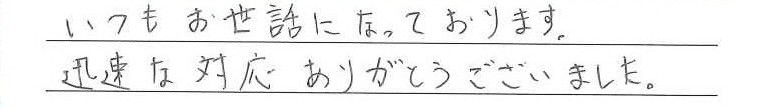 いつもお世話になっております。
迅速な対応ありがとうございました。